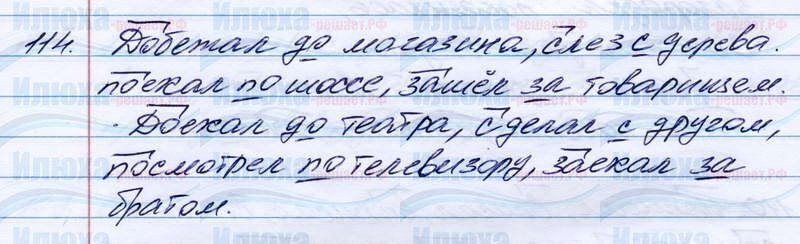 114. Добежал до магазина, слез с дерева.
поехал по шоссе, зашёл за товарищем.
· Доехал до театра, сделал с другом,
посмотрел по телевизору, заехал за
братом.